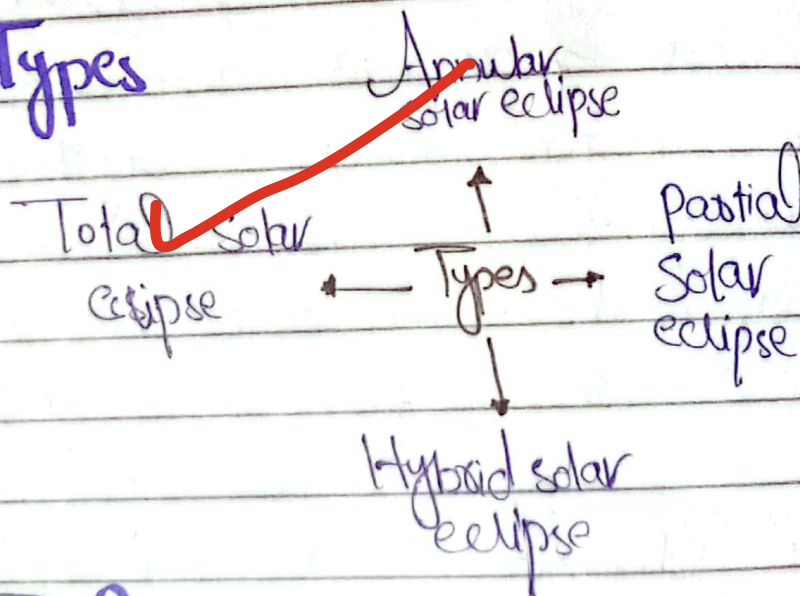 Types
Annular
solar eclipse
Total solar
eclipse
Types
Partial
Solar
eclipse
Hybrid solar
eclipse